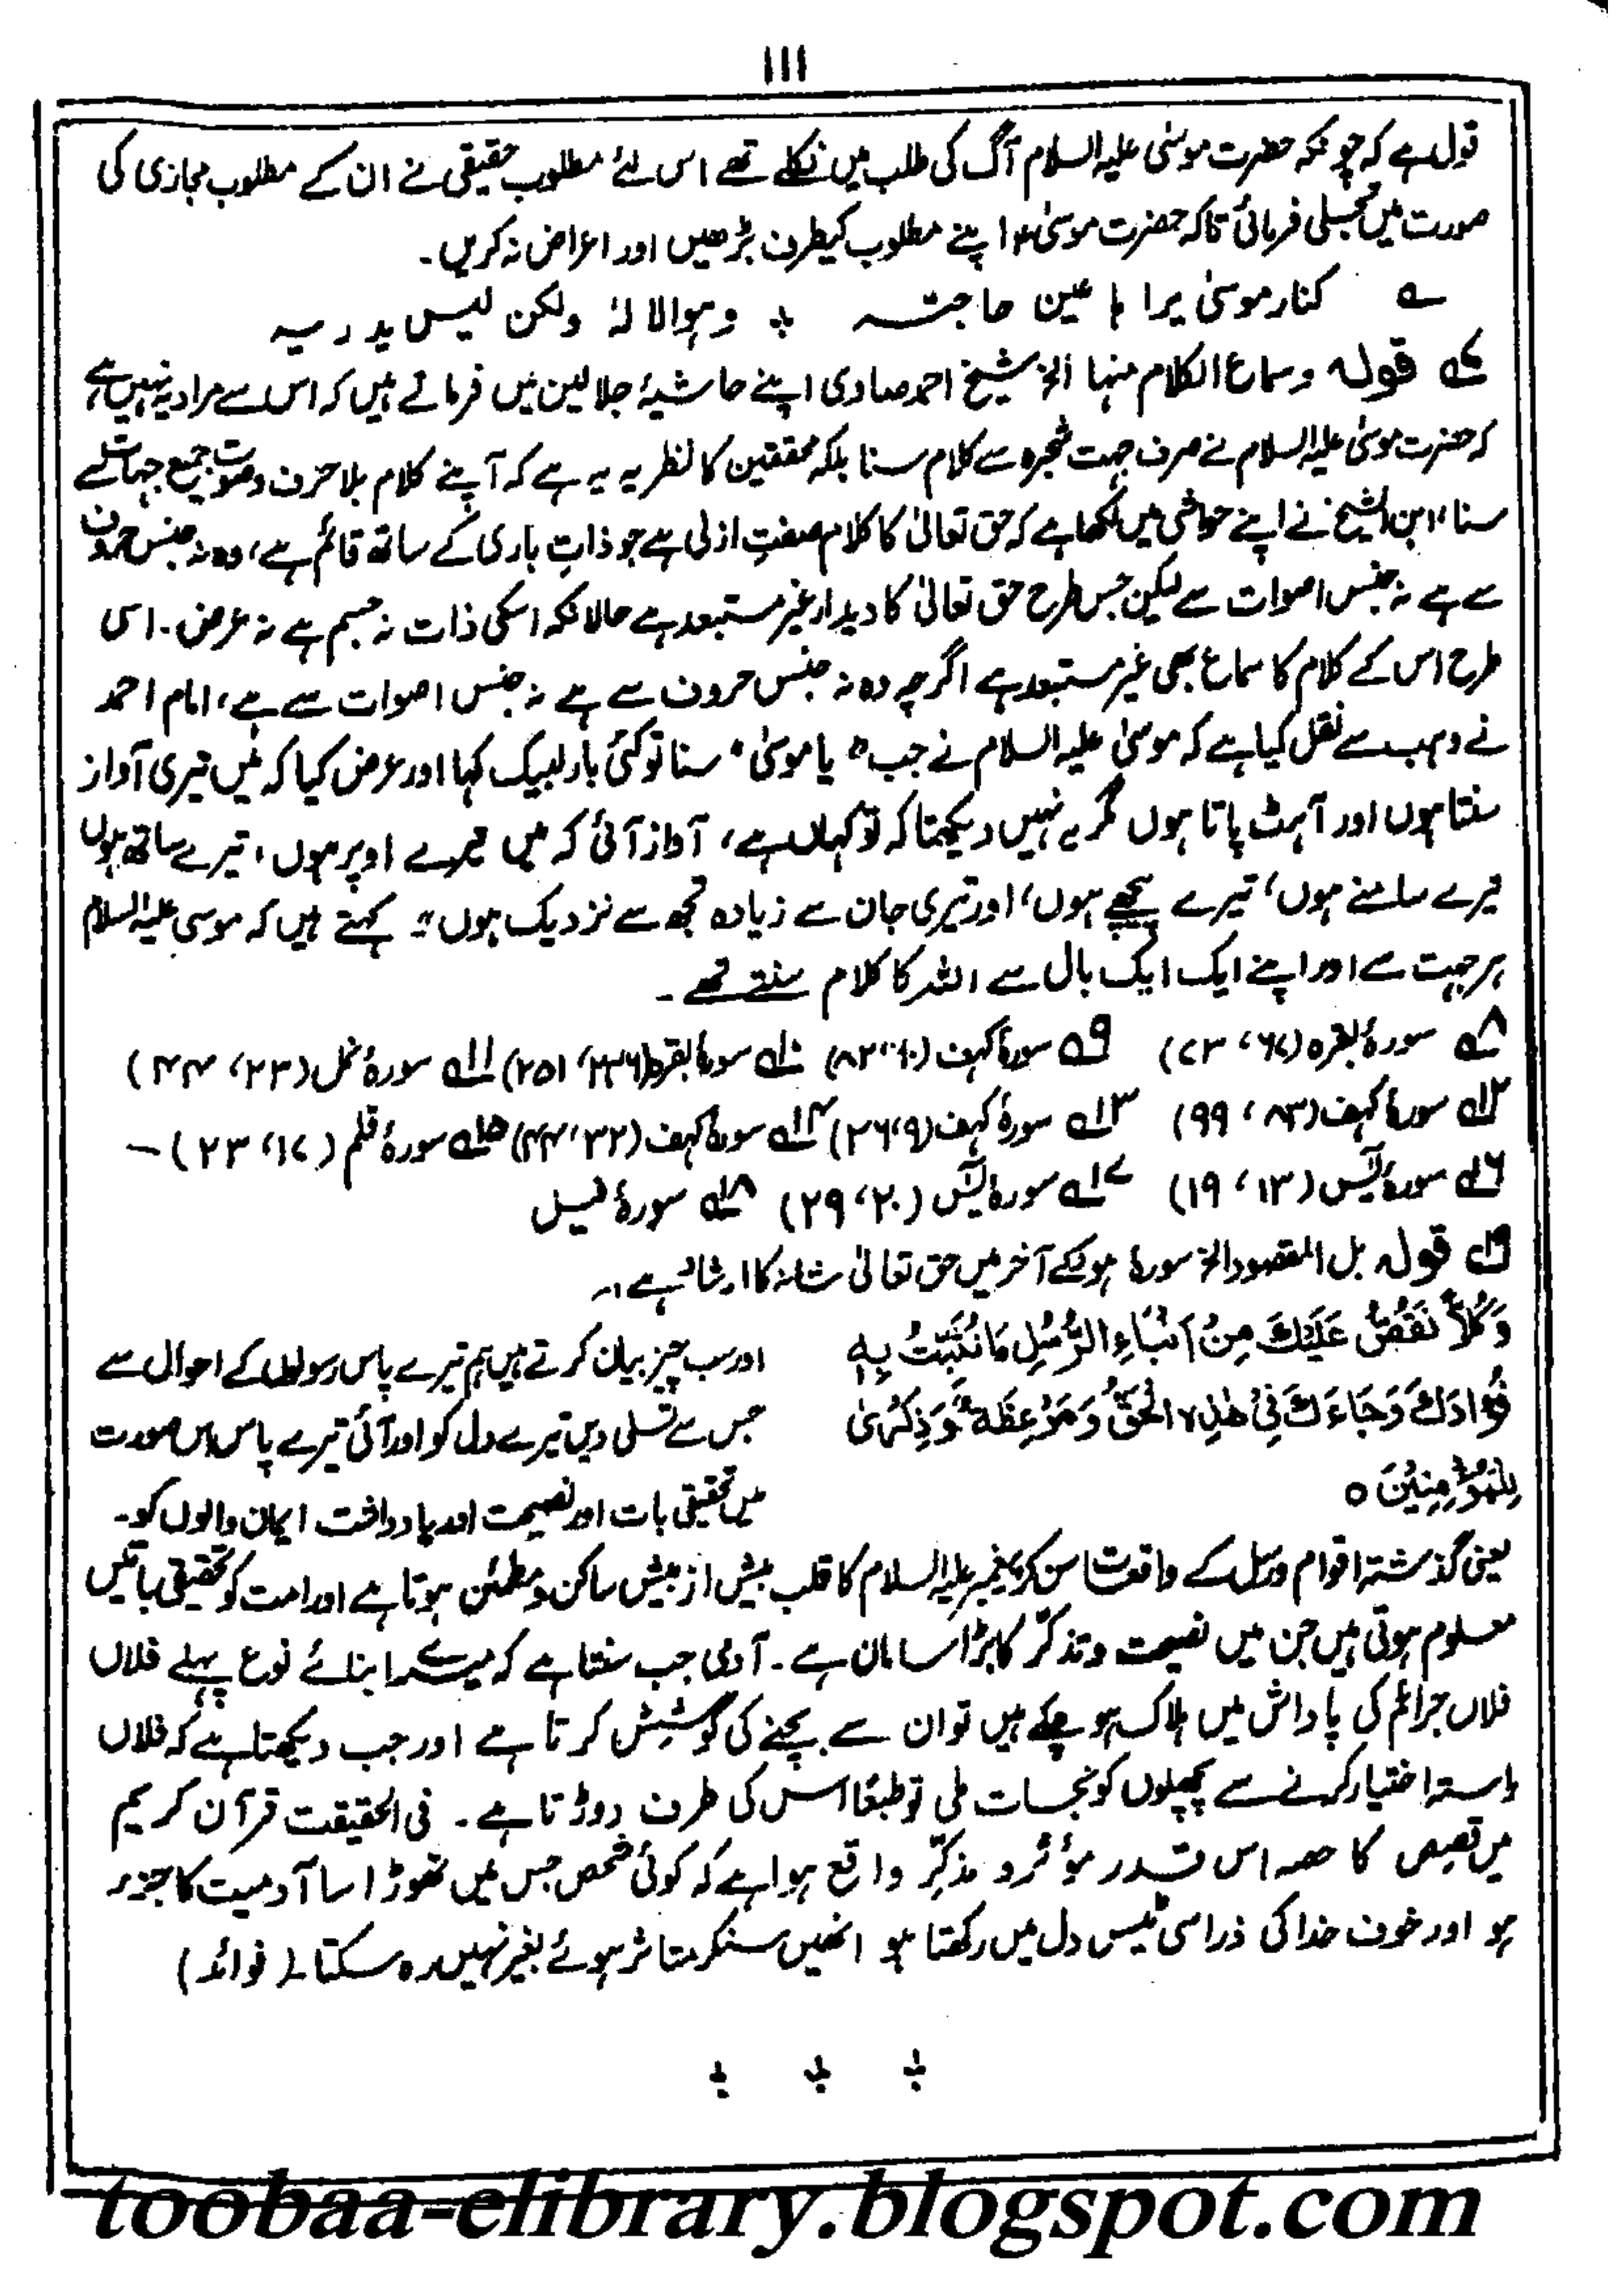 ۱۱۱
قول ہے کہ چونکہ حضرت موسیٰ علیہ السلام آگ کی طلب میں نکلے تھے اس لئے مطلوب حقیقی نے ان کے مطلوب مجازی کی
صورت میں تجلی فرمائی تاکہ حضرت موسیٰؑ اپنے مطلوب کیطرف بڑھیں اور اعراض نہ کریں۔
؎ کنار موسیٰ یراہا عین حاجتہ ؞ وہوالالہٗ ولکن لیس یدریہ
۷ قولہ وسماع الکلام منہا الخ شیخ احمد صاوی اپنے حاشیۂ جلالین میں فرماتے ہیں کہ اس سے مراد یہ نہیں ہے
کہ حضرت موسیٰ علیہ السلام نے صرف جہت شجرہ سے کلام سنا بلکہ محققین کا نظریہ یہ ہے کہ آپنے کلام بلا حرف وصوت جمیع جہات سے
سنا، ابن الشیخ نے اپنے حواشی میں لکھا ہے کہ حق تعالیٰ کا کلام صفتِ ازلی ہے جو ذاتِ باری کے ساتھ قائم ہے، وہ نہ جنس حروف
سے ہے نہ جنس اصوات سے لیکن جس طرح حق تعالیٰ کا دیدار غیر مستبعد ہے حالانکہ اسکی ذات نہ جسم ہے نہ عرض۔ اسی
طرح اس کے کلام کا سماع بھی غیر مستبعد ہے اگرچہ وہ نہ جنس حروف سے ہے نہ جنس اصوات سے ہے، امام احمد
نے وہب سے نقل کیا ہے کہ موسیٰ علیہ السلام نے جب "یا موسیٰ" سنا تو کئی بار لبیک کہا اور عرض کیا کہ میں تیری آواز
سنتا ہوں اور آہٹ پاتا ہوں مگر یہ نہیں دیکھتا کہ تو کہاں ہے، آواز آئی کہ میں تیرے اوپر ہوں، تیرے ساتھ ہوں
تیرے سامنے ہوں، تیرے پیچھے ہوں، اور تیری جان سے زیادہ تجھ سے نزدیک ہوں" کہتے ہیں کہ موسی علیہ السلام
ہر جہت سے اور اپنے ایک ایک بال سے اللہ کا کلام سنتے تھے۔
۸ سورۂ بقرہ (۶۷، ۷۳) ۹ سورۂ کہف (۶۰، ۸۲) ۱۰ سورۂ بقرہ (۲۴۶، ۲۵۱) ۱۱ سورۂ نمل (۲۳، ۴۴)
۱۲ سورۂ کہف (۸۳، ۹۹) ۱۳ سورۂ کہف (۹، ۲۶) ۱۴ سورۂ کہف (۳۲، ۴۴) ۱۵ سورۂ قلم (۱۷، ۲۳) –
۱۶ سورۂ یٰسٓ (۱۳، ۱۹) ۱۷ سورۂ یٰسٓ (۲۰، ۲۹) ۱۸ سورۂ فیل
۱۹ قولہ بل المقصود الخ سورۂ ہود کے آخر میں حق تعالیٰ شانہ کا ارشاد ہے:۔
وَكُلًّا نَقُصُّ عَلَيْكَ مِنْ اَنْبَاءِ الرُّسُلِ مَا نُثَبِّتُ بِهٖ
فُؤَادَكَ وَجَاءَكَ فِيْ هٰذِهِ الْحَقُّ وَمَوْعِظَةٌ وَّذِكْرٰى
لِلْمُؤْمِنِيْنَ ○
اور سب چیز بیان کرتے ہیں ہم تیرے پاس رسولوں کے احوال سے
جس سے تسلی دیں تیرے دل کو اور آئی تیرے پاس اس صورت
میں تحقیقی بات اور نصیحت اور یادداشت ایمان والوں کو۔
یعنی گذشتہ اقوام و رسل کے واقعات سن کر پیغمبر علیہ السلام کا قلب بیش از بیش ساکن و مطمئن ہوتا ہے اور امت کو تحقیقی باتیں
معلوم ہوتی ہیں جن میں نصیحت و تذکّر کا بڑا سامان ہے۔ آدمی جب سنتا ہے کہ میرے ابنائے نوع پہلے فلاں
فلاں جرائم کی پاداش میں ہلاک ہو چکے ہیں تو ان سے بچنے کی کوشش کرتا ہے اور جب دیکھتا ہے کہ فلاں
راستہ اختیار کرنے سے پچھلوں کو نجات ملی تو طبعًا اس کی طرف دوڑتا ہے۔ فی الحقیقت قرآن کریم
میں قصص کا حصہ اس قدر مؤثر و مذکّر واقع ہوا ہے کہ کوئی شخص جس میں تھوڑا سا آدمیت کا جزء
ہو اور خوف خدا کی ذرا سی ٹیس دل میں رکھتا ہو انھیں سنکر متاثر ہوئے بغیر نہیں رہ سکتا۔ (فوائد)
؞ ؞ ؞
toobaa-elibrary.blogspot.com